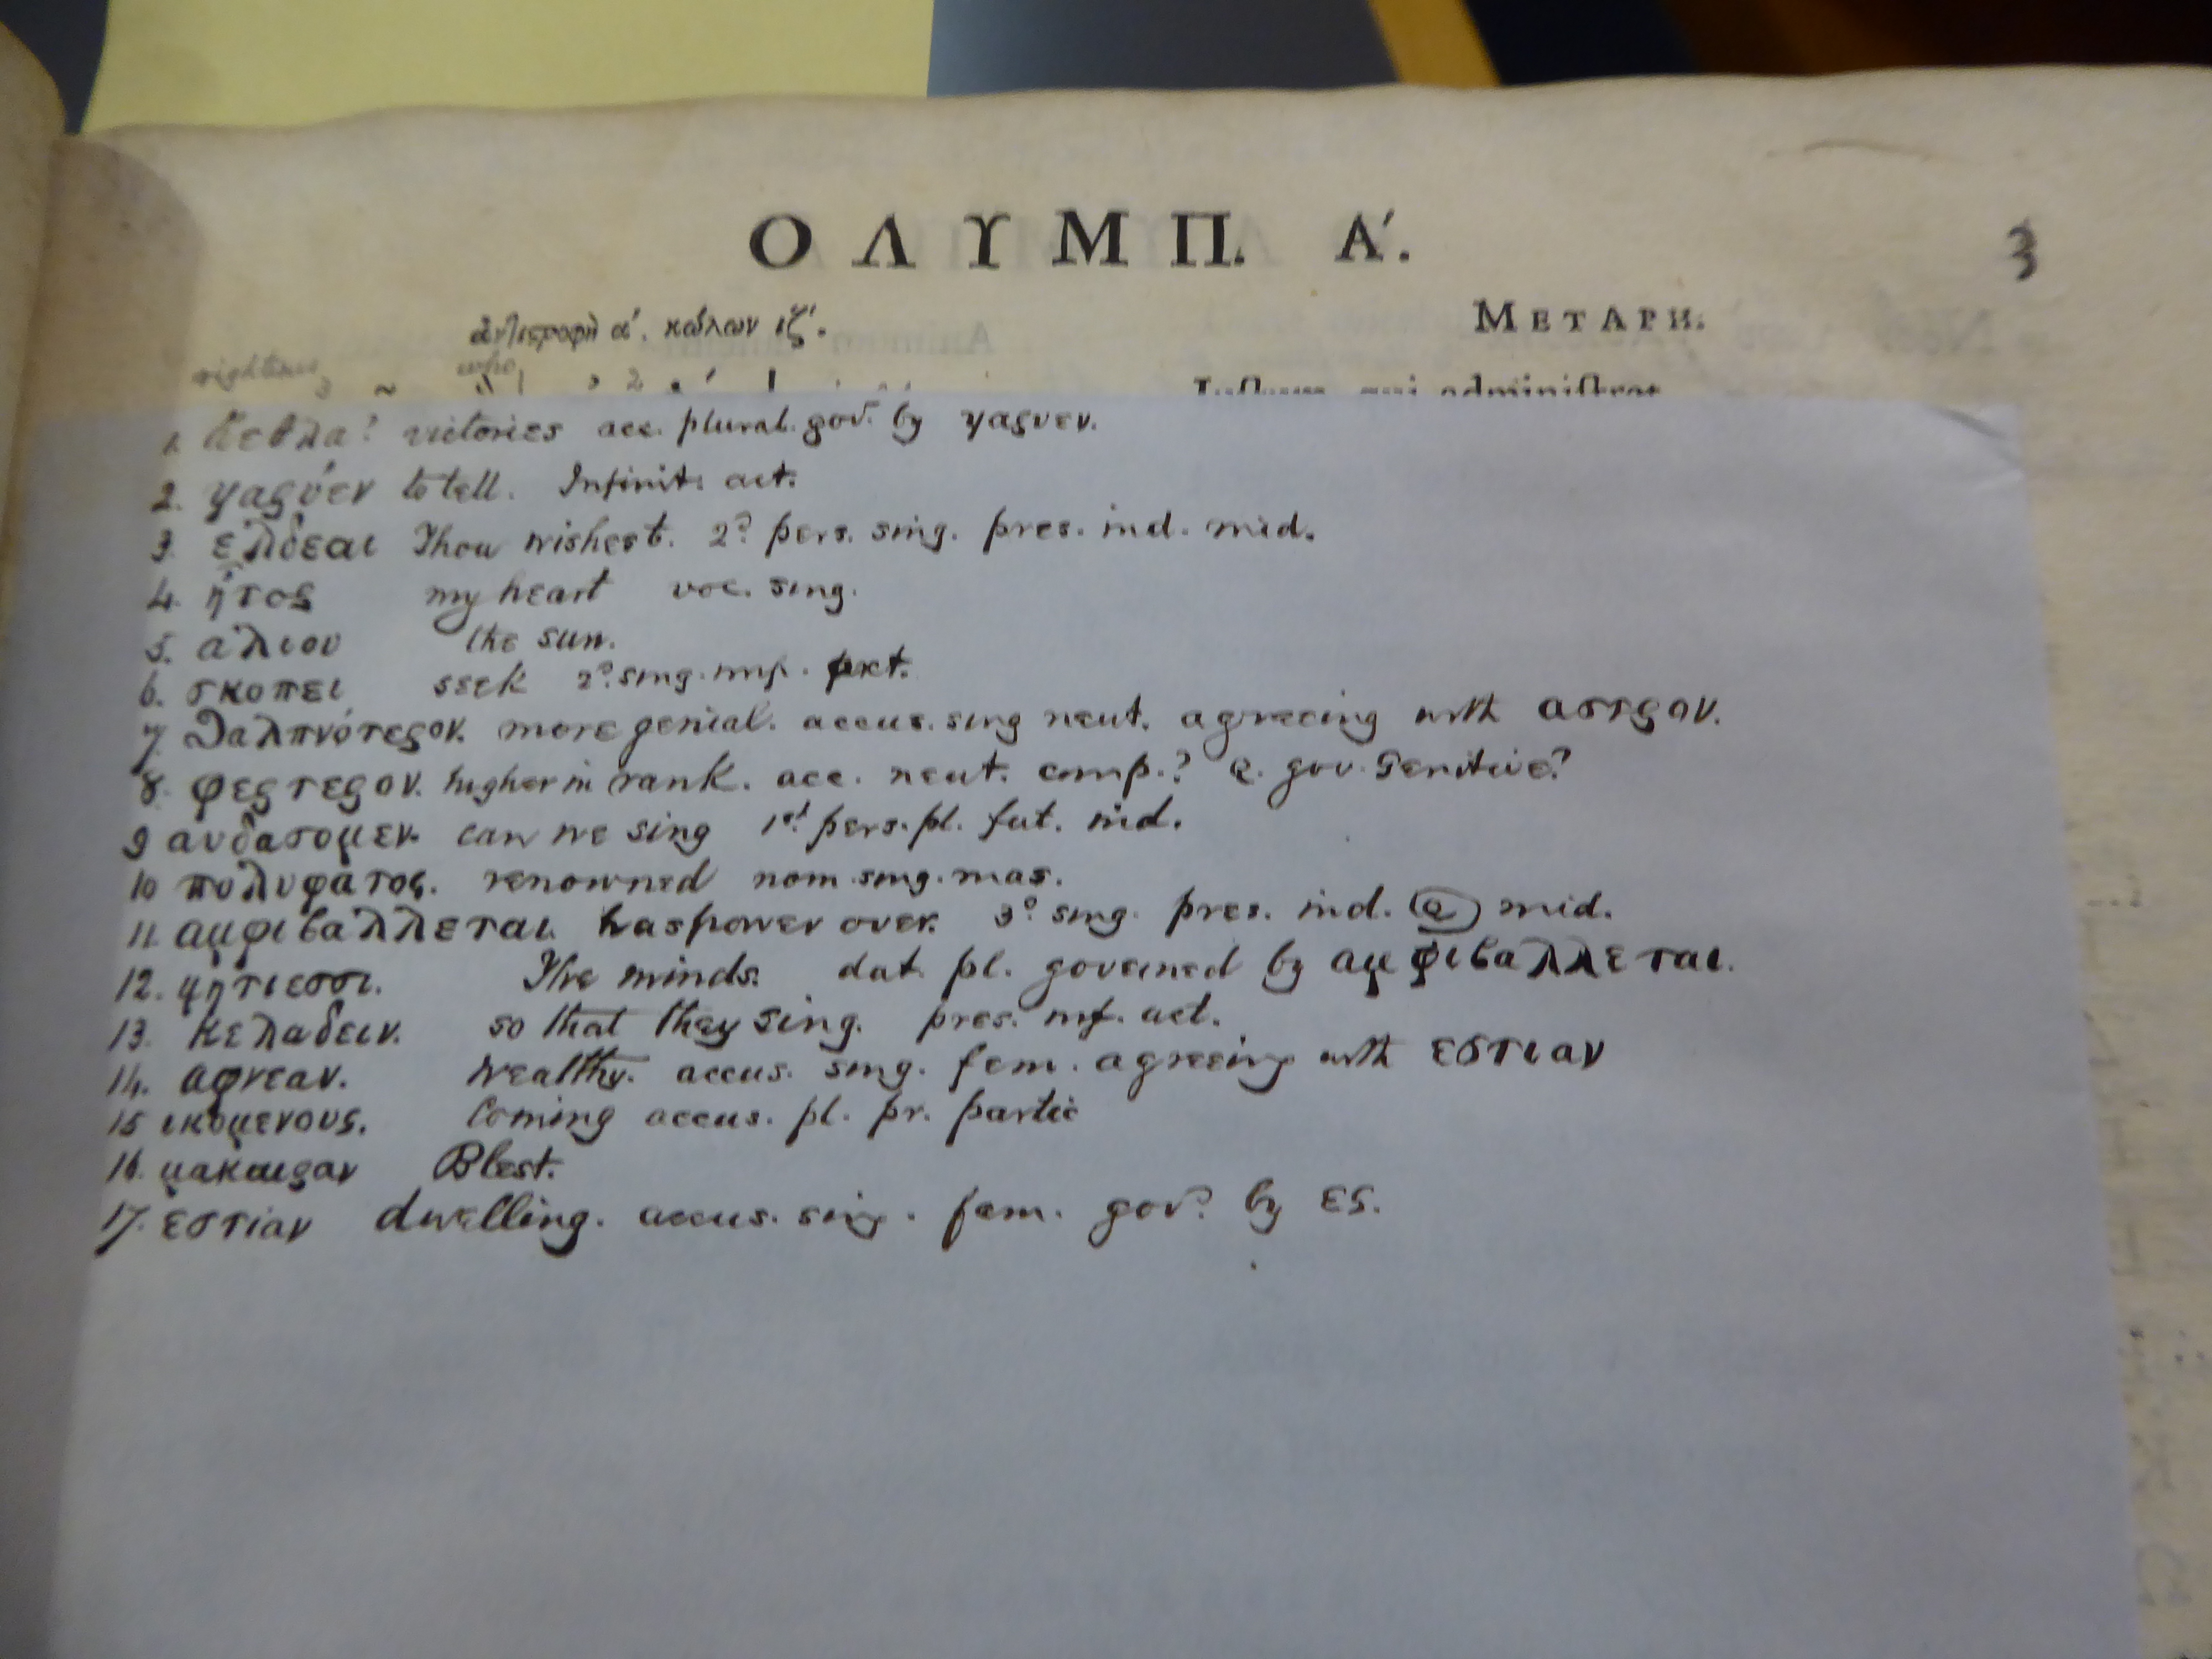 ΟΛΥΜΠ. Α΄.
3
ἀντιστροφὴ α΄. κώλων ιζ΄.
ΜΕΤΑΡΗ.
righteous
who
1. ἄεθλα? victories acc. plural. govd. by γαρυεν.
2. γαρύεν to tell. Infinit. act.
3. ἐλδεαι Thou wishest. 2d pers. sing. pres. ind. mid.
4. ἦτορ my heart voc. sing.
5. αλιου the sun.
6. σκοπει seek 2d. sing. imp. act.
7. θαλπνότερον. more genial. accus. sing neut. agreeing with αστρον.
8. φερτερον. higher in rank. acc. neut. comp.? Q. gov. Genitive?
9 αυδασομεν. can we sing 1st. pers. pl. fut. ind.
10 πολυφατος. renowned nom. sing. mas.
11. αμφιβαλλεται. has power over. 3d sing. pres. ind. Q mid.
12. μητιεσσι. The minds. dat. pl. governed by αμφιβαλλεται.
13. κελαδειν. so that they sing. pres. inf. act.
14. αφνεαν. wealthy. accus. sing. fem. agreeing with εστιαν
15 ικομενους. Coming accus. pl. pr. partic
16. μακαιραν Blest.
17. εστίαν dwelling. accus. sing. fem. govd. by ες.